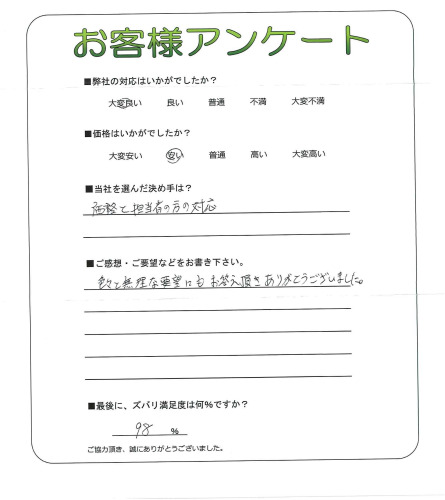 お客様アンケート
■弊社の対応はいかがでしたか？
大変良い 良い 普通 不満 大変不満
■価格はいかがでしたか？
大変安い 安い 普通 高い 大変高い
■当社を選んだ決め手は？
価格と担当者の方の対応
■ご感想・ご要望などをお書き下さい。
色々と無理な要望にもお答え頂きありがとうございました。
■最後に、ズバリ満足度は何％ですか？
98 ％
ご協力頂き、誠にありがとうございました。